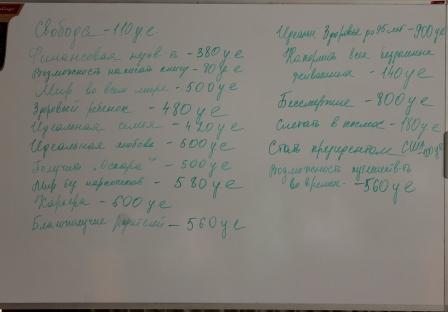 Свобода - 110 у е
Финансовая незав ть - 380 у е
Возможность написать книгу - 80 у е
Мир во всем мире - 500 у е
Здоровый ребенок - 480 у е
Идеальная семья - 420 у е
Идеальная любовь - 500 у е
Получить "Оскара" - 500 у е
Мир без наркотиков - 580 у е
Карьера - 500 у е
Благополучие родителей - 560 у е
Идеалн. Здоровье до 95 лет - 900 у е
Накормить всех бездомных
животных - 140 у е
Бессмертие - 800 у е
Слетать в космос - 180 у е
Стать президентом США
Возможность путешеств-ть
во времени - 560 у е